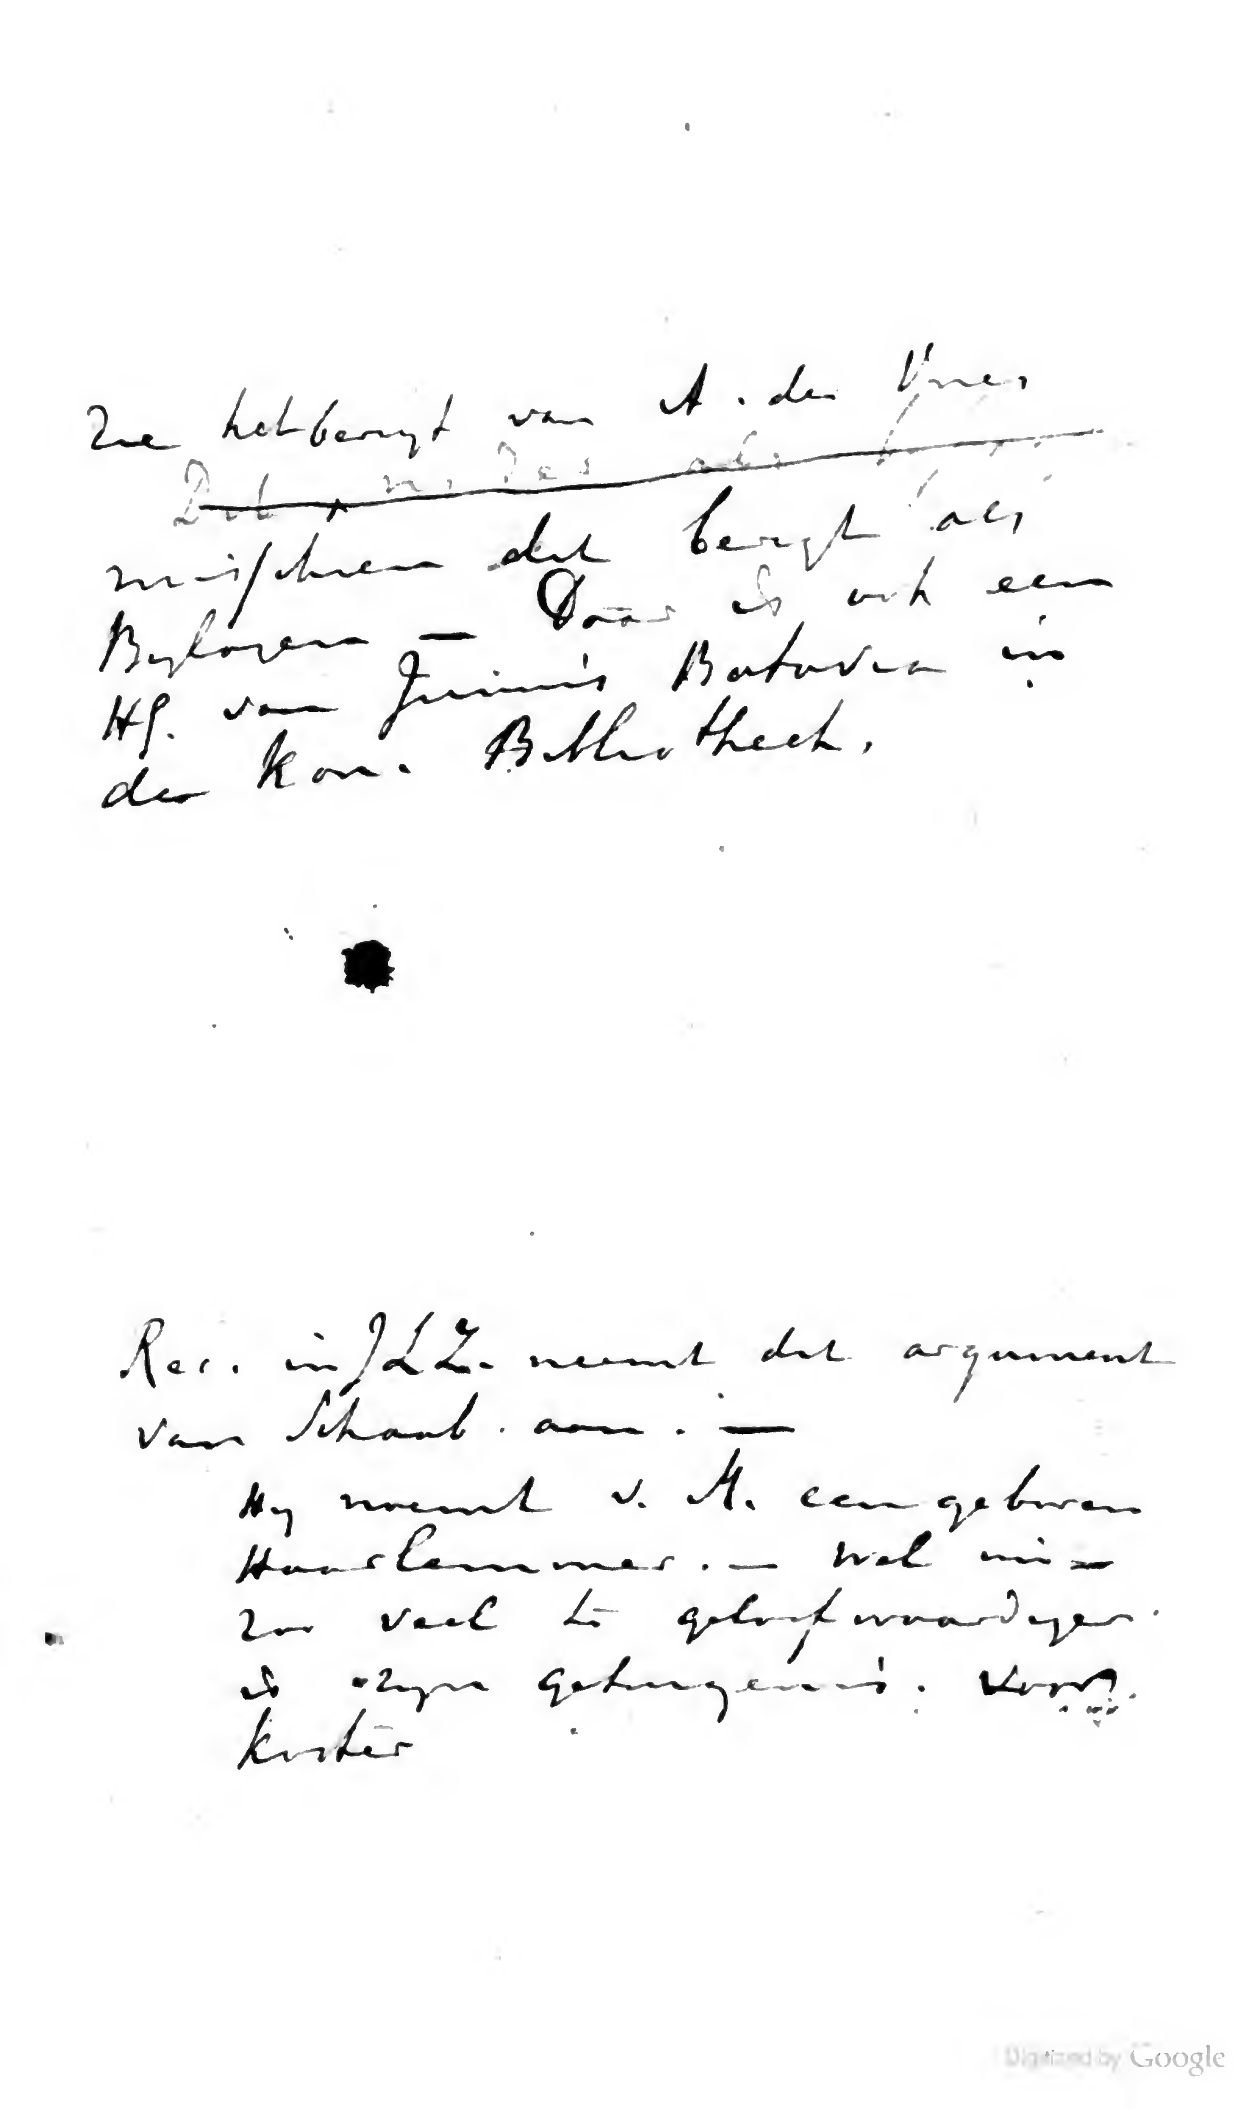 Zie het berigt van A. de Vries
Dit is des als
misschien dit berigt als
Bylagen — Daar is ook een
HS. van Junius Batavia in
de Kon. Bibliotheek.
Rec. in JLZ. neemt dit argument
van Schaab aan. —
Hy noemt v. M. een geboren
Haarlemmer. — wel nu —
zoo veel te geloofwaardiger
is zyn getuigenis. voor
Koster
Digitized by Google